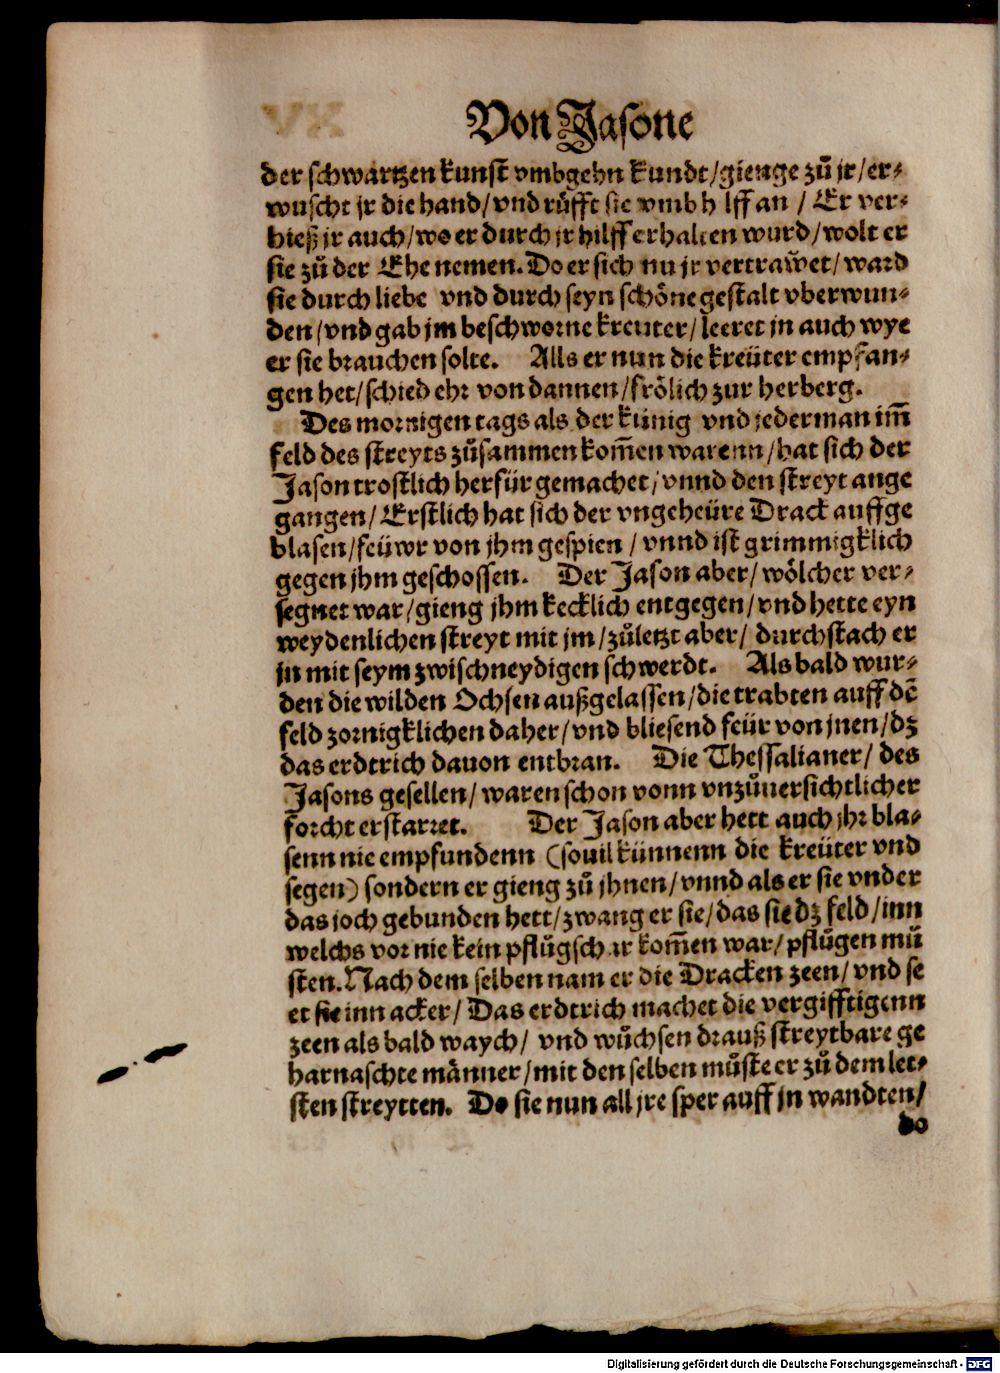 Von Jasone
der schwartzen kunst vmbgehn kundt/gienge zů jr/er-
wuscht jr die hand/vnd růfft sie vmb h lff an / Er ver-
hieß jr auch/wo er durch jr hilff erhalten wurd/wolt er
sie zů der Ehe nemen. Do er sich nu jr vertraẅet/ward
sie durch liebe vnd durch seyn schöne gestalt vberwun-
den/vnd gab jm beschworne kreuter/leeret jn auch wye
er sie brauchen solte. Alls er nun die kreüter empfan-
gen het/schied ehr von dannen/frölich zur herberg.
Des mornigen tags als der künig vnd jederman im̄
feld des streyts zůsammen kom̄en warenn/hat sich der
Jason trostlich herfür gemachet/vnnd den streyt ange
gangen/Erstlich hat sich der vngeheüre Drack auffge
blasen/feüwr von jhm gespien/vnnd ist grimmigklich
gegen jhm geschossen. Der Jason aber/wölcher ver-
segnet war/gieng jhm kecklich entgegen/vnd hette eyn
weydenlichen streyt mit jm/zůletzt aber/durchstach er
jn mit seym zwischneydigen schwerdt. Als bald wur-
den die wilden Ochsen außgelassen/die trabten auff dē
feld zornigklichen daher/vnd bliesend feür von jnen/dz
das erdtrich dauon entbran. Die Thessalianer/des
Jasons gesellen/waren schon vonn vnzůuersichtlicher
forcht erstarret. Der Jason aber hett auch jhr bla-
senn nie empfundenn (souil künnenn die kreüter vnd
segen) sondern er gieng zů jhnen/vnnd als er sie vnder
das joch gebunden hett/zwang er sie/das sie dz feld/inn
welchs vor nie kein pflůgsch ar kom̄en war/pflůgen mů
sten. Nach dem selben nam er die Dracken zeen/vnd se
et sie inn acker/Das erdtrich machet die vergifftigenn
zeen als bald waych/vnd wůchsen drauß streytbare ge
harnaschte männer/mit den selben můste er zů dem let-
sten streytten. Do sie nun all jre sper auff jn wandten/
do
Digitalisierung gefördert durch die Deutsche Forschungsgemeinschaft - DFG